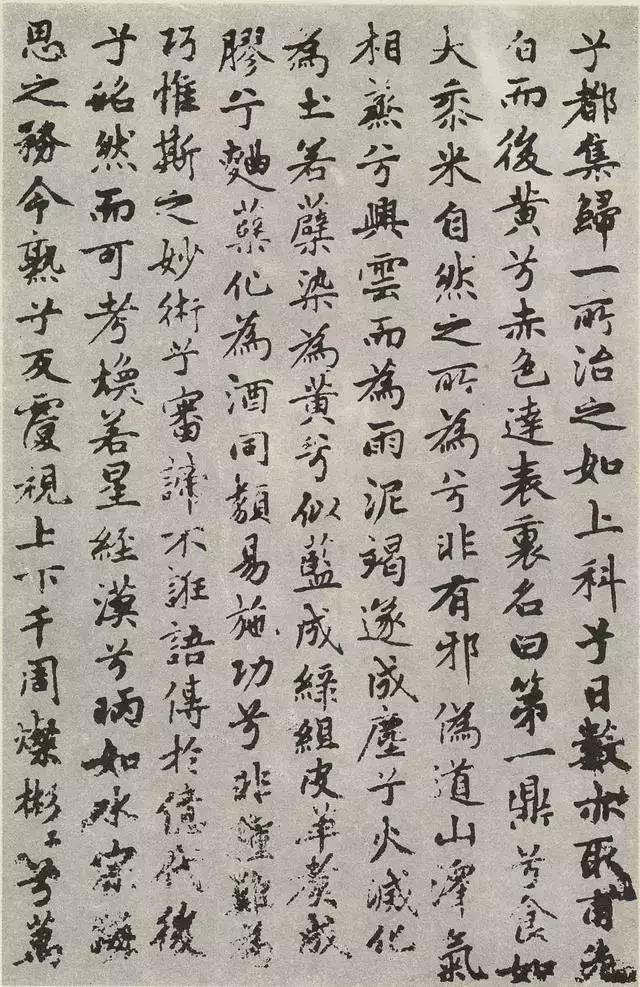 兮都集歸一所治之如上科兮日數亦取甫先
白而後黃兮赤色達表裏名曰第一鼎兮食如
大黍米自然之所為兮非有邪偽道山澤氣
相蒸兮興雲而為雨泥竭遂成塵兮火滅化
為土若蘗染為黃兮似藍成綠組皮革煮成
膠兮麴蘗化為酒同類易施功兮非種難為
巧惟斯之妙術兮審諦不誑語傳於億代後
兮昭然而可考煥若星經漢兮昞如水宗海
思之務令熟兮反覆視上下千周燦彬〻兮萬